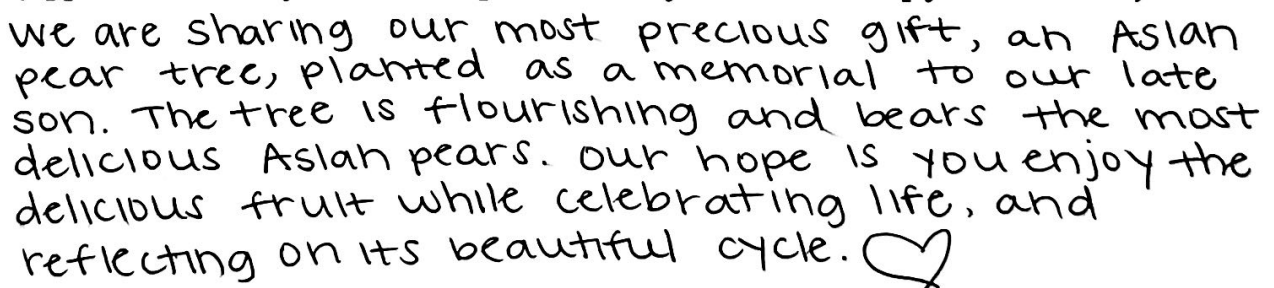 we are sharing our most precious gift, an Asian
pear tree, planted as a memorial to our late
son. The tree is flourishing and bears the most
delicious Asian pears. our hope is you enjoy the
delicious fruit while celebrating life, and
reflecting on its beautiful cycle. ♡